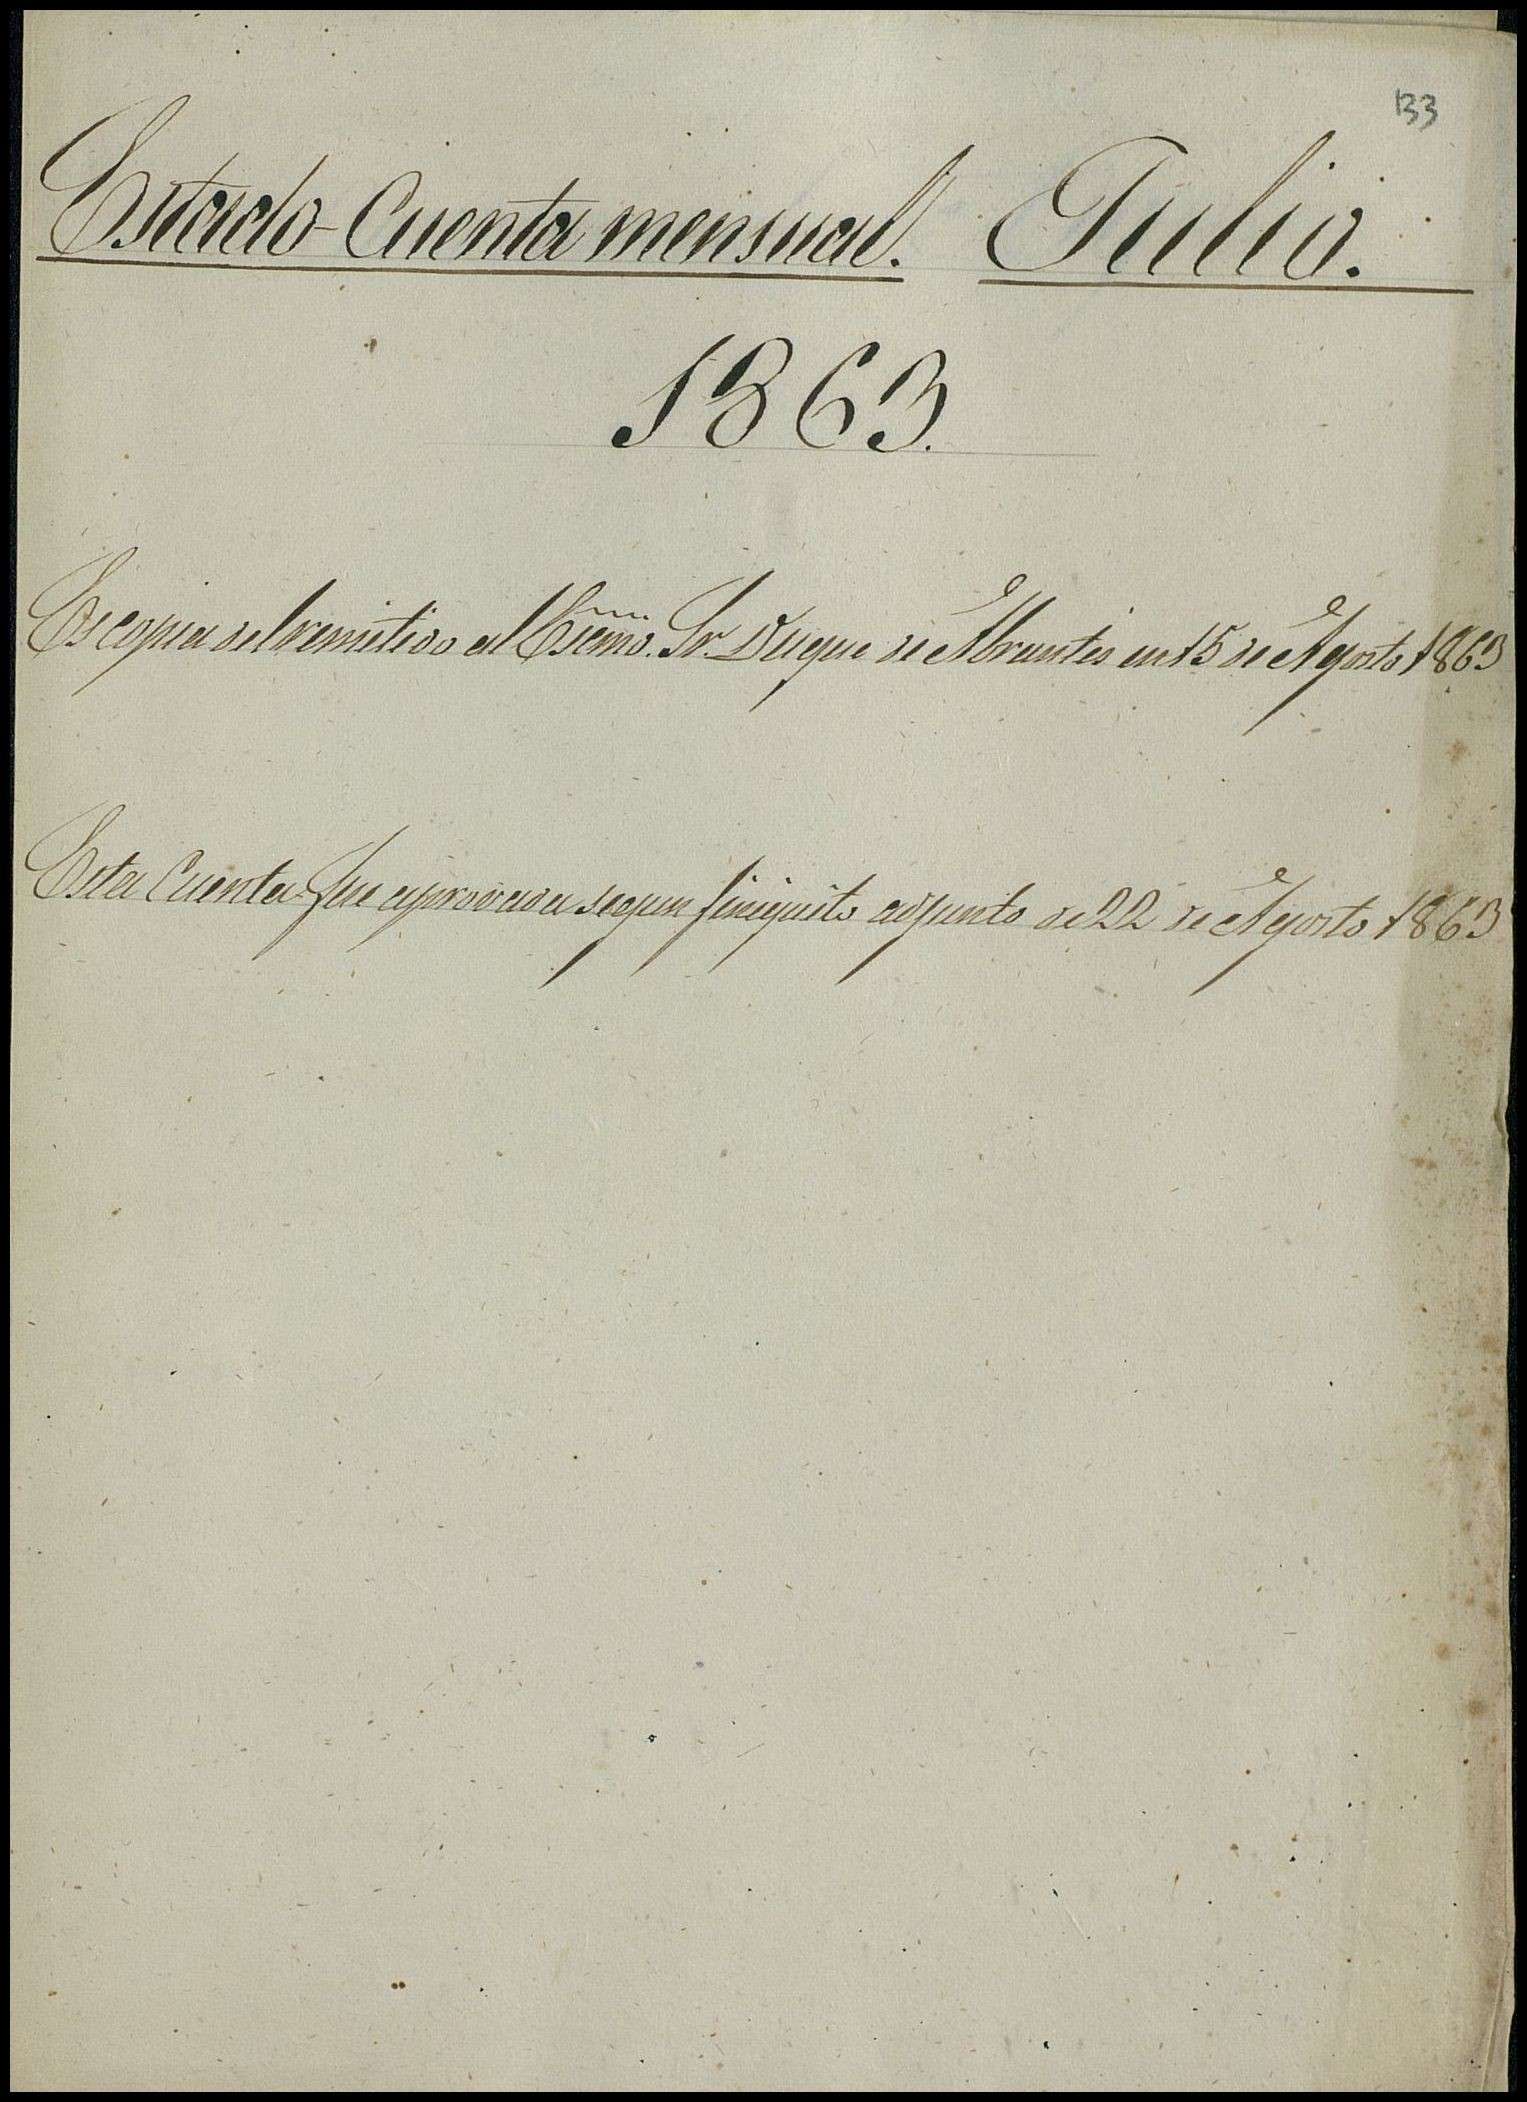 133
Estado-Cuenta mensual. Julio.
1863.
Es copia del remitido al Escmo. Sr. Duque de Abrantes en 15 de Agosto 1863
Esta Cuenta fue aprovada segun finiquito adjunto de 22 de Agosto 1863